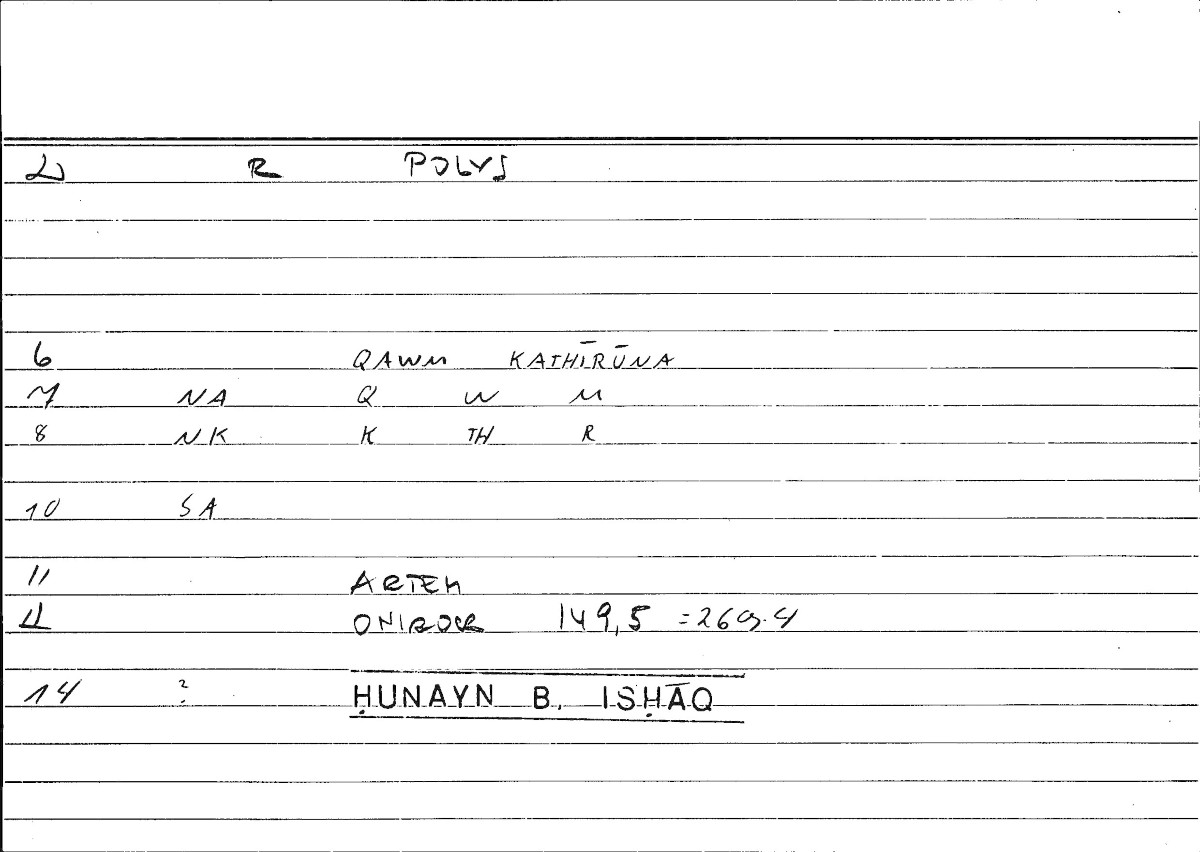 R POLYS
6 QAWM KATHĪRŪNA
7 NA Q W M
8 NK K TH R
10 SA
11 ARTEM
ONIROCR 149,5 = 269.4
14 ? ḤUNAYN B. ISḤĀQ